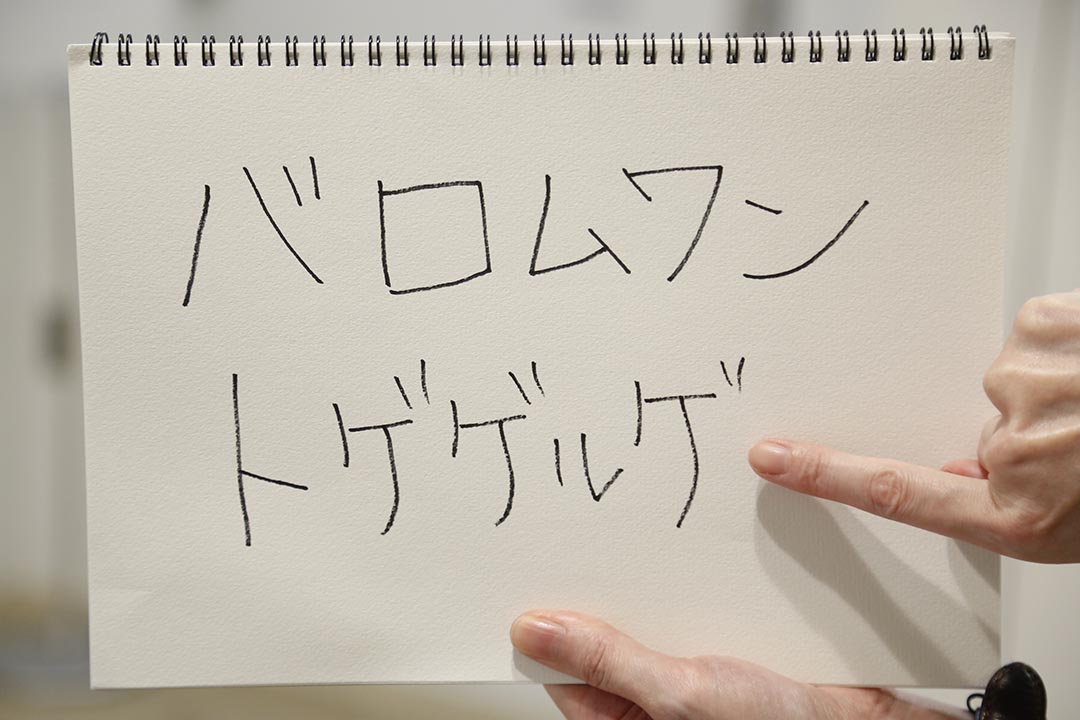 バロムワン
トゲゲルゲ